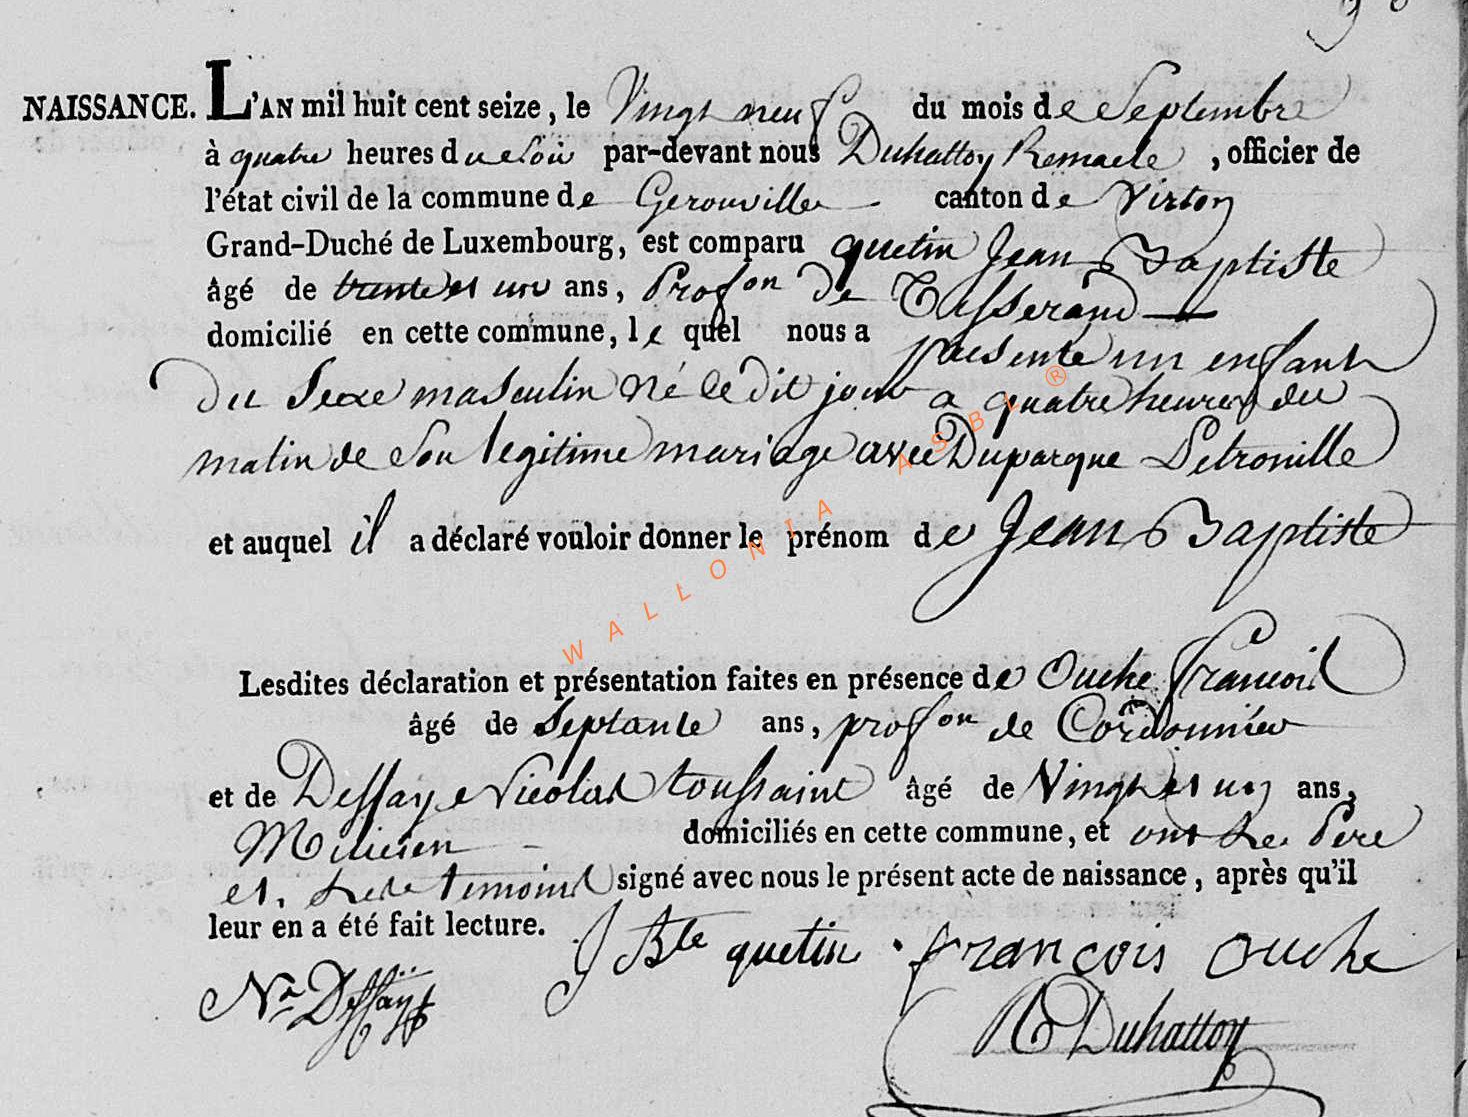 NAISSANCE. L'AN mil huit cent seize, le Vingt neuf du mois de Septembre
à quatre heures du Soir par-devant nous Duhattoy Remacle, officier de
l'état civil de la commune de Gerouville canton de Virton
Grand-Duché de Luxembourg, est comparu quetin Jean Baptiste
âgé de trente et un ans, Profon de Tisserand
domicilié en cette commune, le quel nous a présenté un enfant
du Sexe masculin né le dit jour a quatre heures du
matin de Son legitime mariage avec Duparque Petronille
et auquel il a déclaré vouloir donner le prénom de Jean Baptiste
Lesdites déclaration et présentation faites en présence de Ouche francois
âgé de Septante ans, profon de Cordonnier
et de Dessaye Nicolas toussaint âgé de Vingt et un ans,
Milicien domiciliés en cette commune, et ont Les Pere
et, temoins signé avec nous le présent acte de naissance, après qu'il
leur en a été fait lecture. J Bte quetin. françois ouche
Ns Dessaÿ
R Duhattoy
WALLONIA ASBL ®